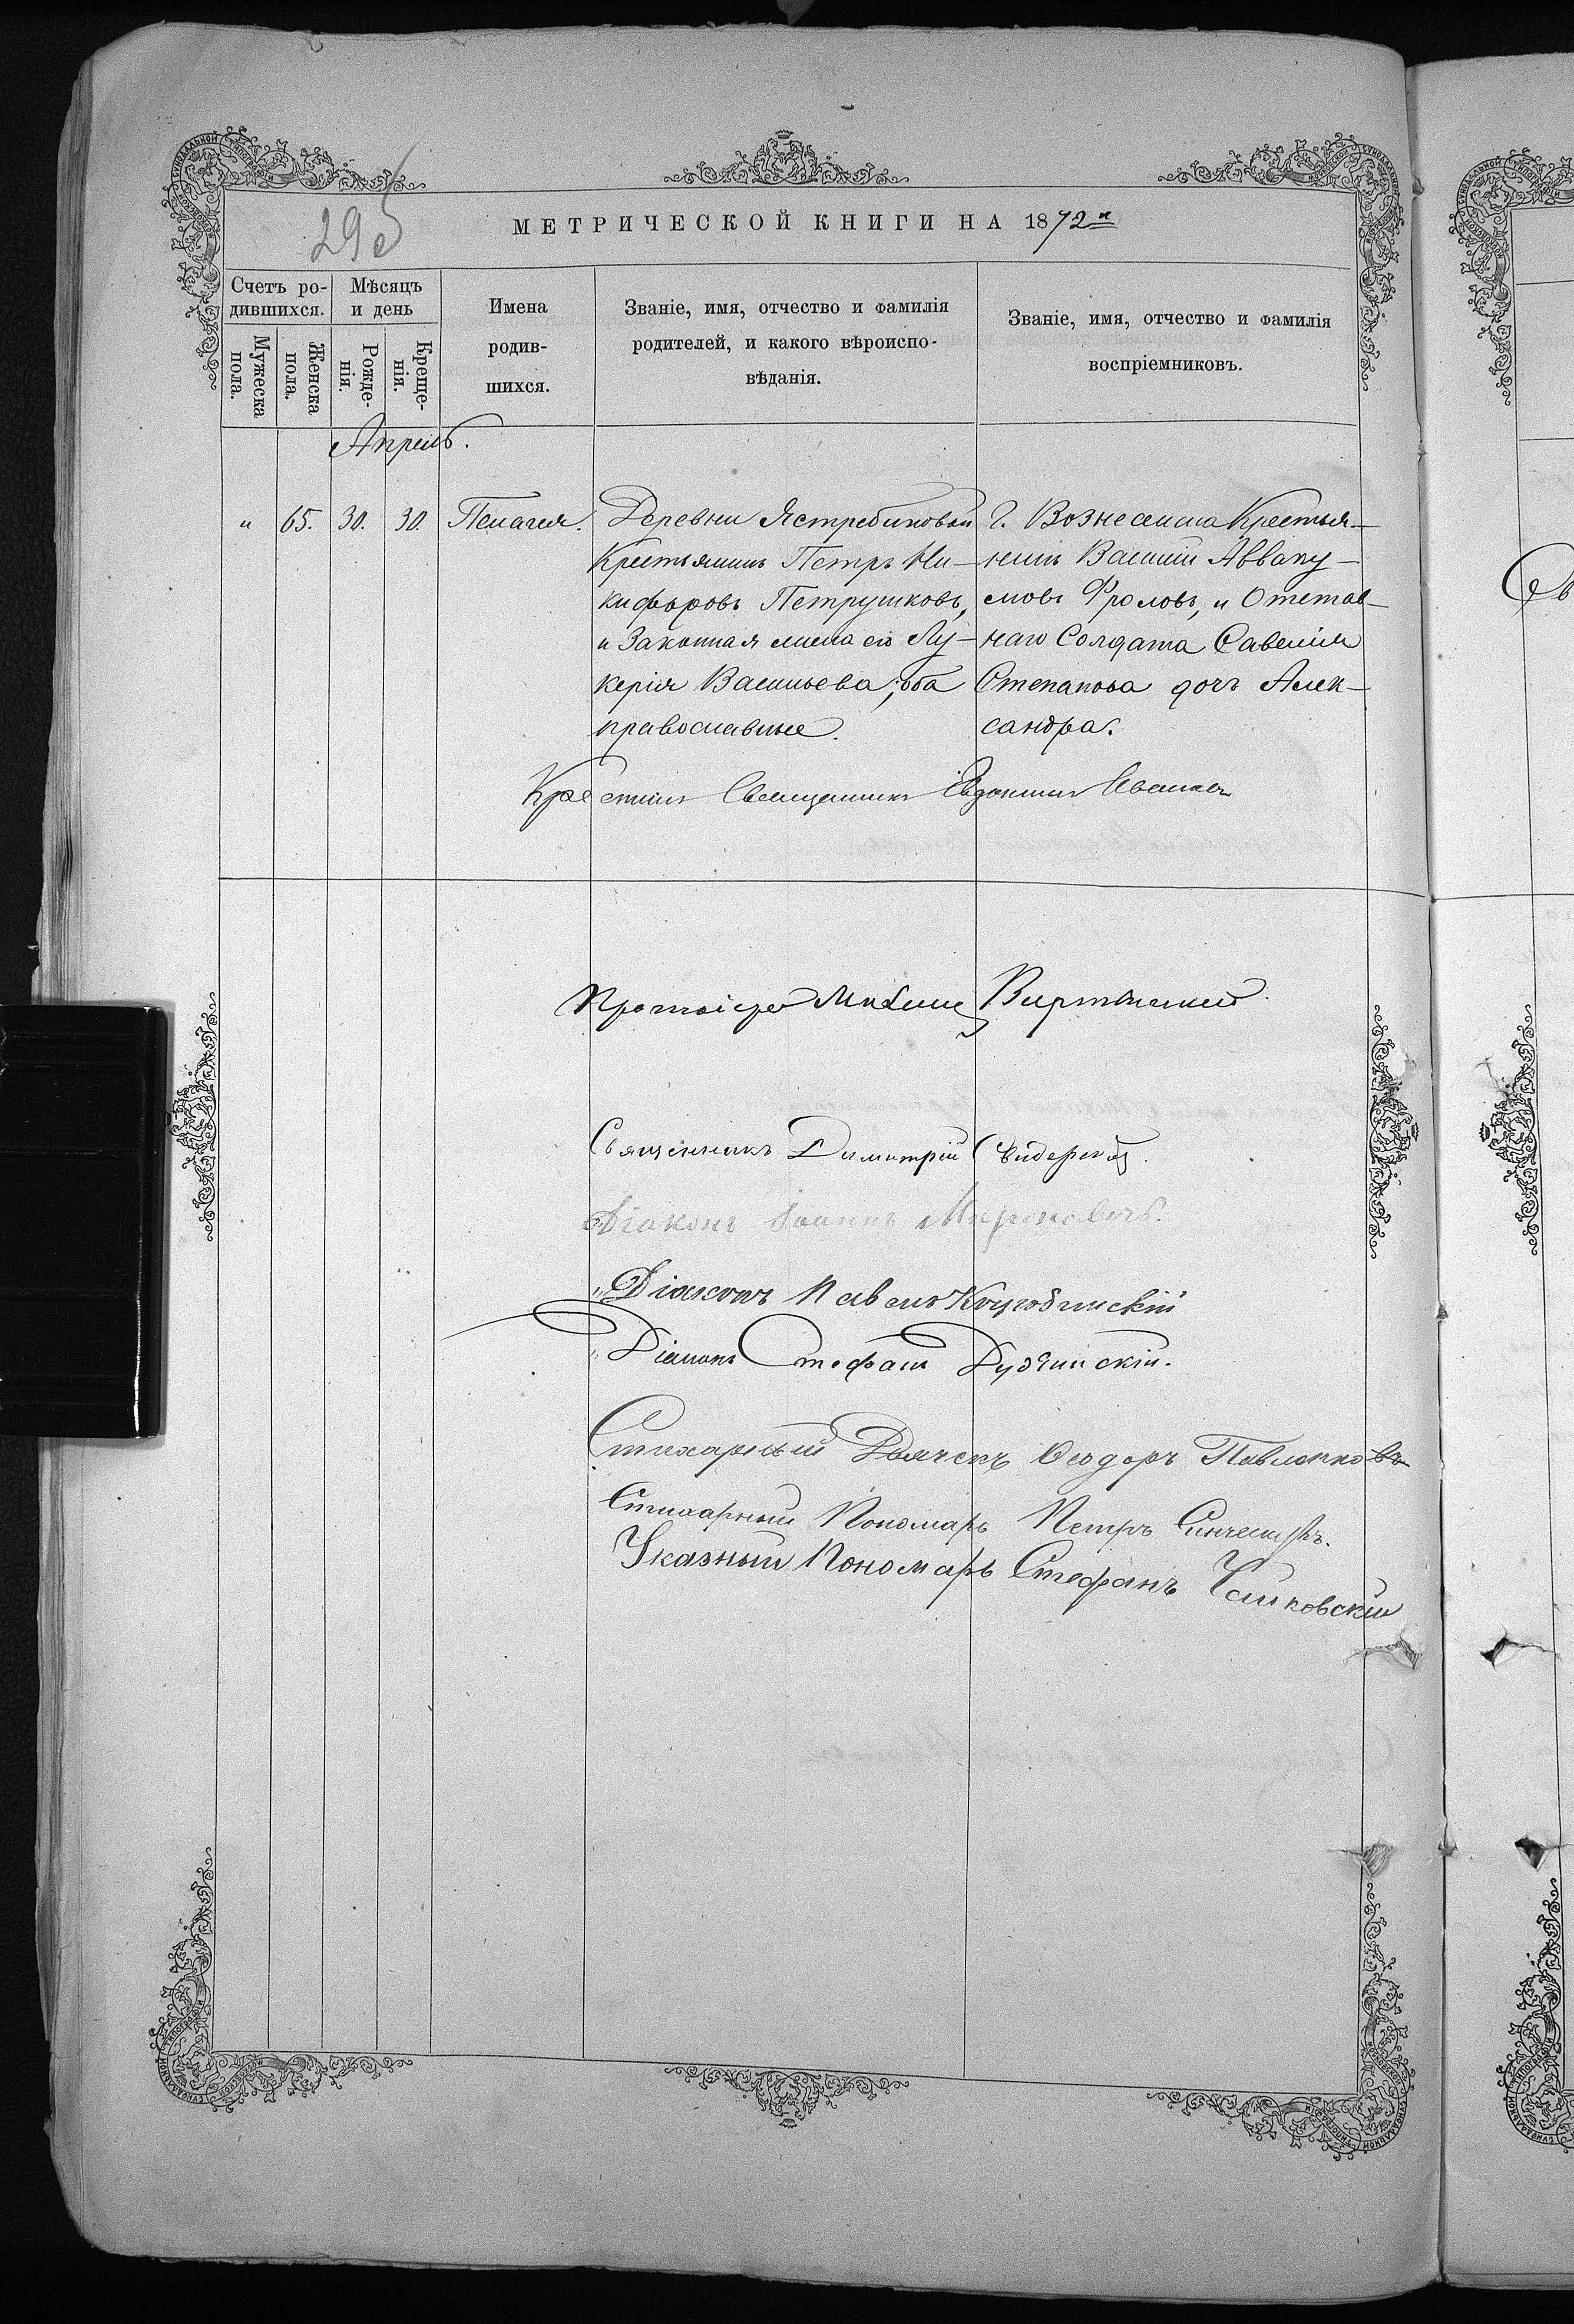 295
МЕТРИЧЕСКОЙ КНИГИ НА 1872й
Счетъ ро-
дившихся.
Мѣсяцъ
и день
Мужеска
пола.
Женска
пола.
Рожде-
нія.
Креще-
нія.
Имена
родив-
шихся.
Званіе, имя, отчество и фамилія
родителей, и какого вѣроиспо-
вѣданія.
Званіе, имя, отчество и фамилія
воспріемниковъ.
Апрель.
" 65. 30. 30. Пелагея.
Деревни Ястребиновой
Крестьянинъ Петръ Ни-
кифоровъ Петрушковъ,
и Законная жена его Лу-
керія Васильева, оба
православные.
Г. Вознесенска Крестья-
нинъ Василій Авваку-
мовъ Фроловъ, и Отстав-
наго Солдата Савелія
Степанова дочъ Алек-
сандра.
Крестилъ Священникъ Евдокимъ Ивановъ
Протоіерей Михаилъ
Священникъ Димитрій Сѣидерскій.
Діаконъ Іоаннъ Мироновичъ.
"Діаконъ Павелъ
"Діаконъ Стефанъ Дубинскій.
Стихарный Дьячекъ Ѳеодоръ Павленковъ
Стихарный Пономарь Петръ
Указный Пономарь Стефанъ Чайковскій